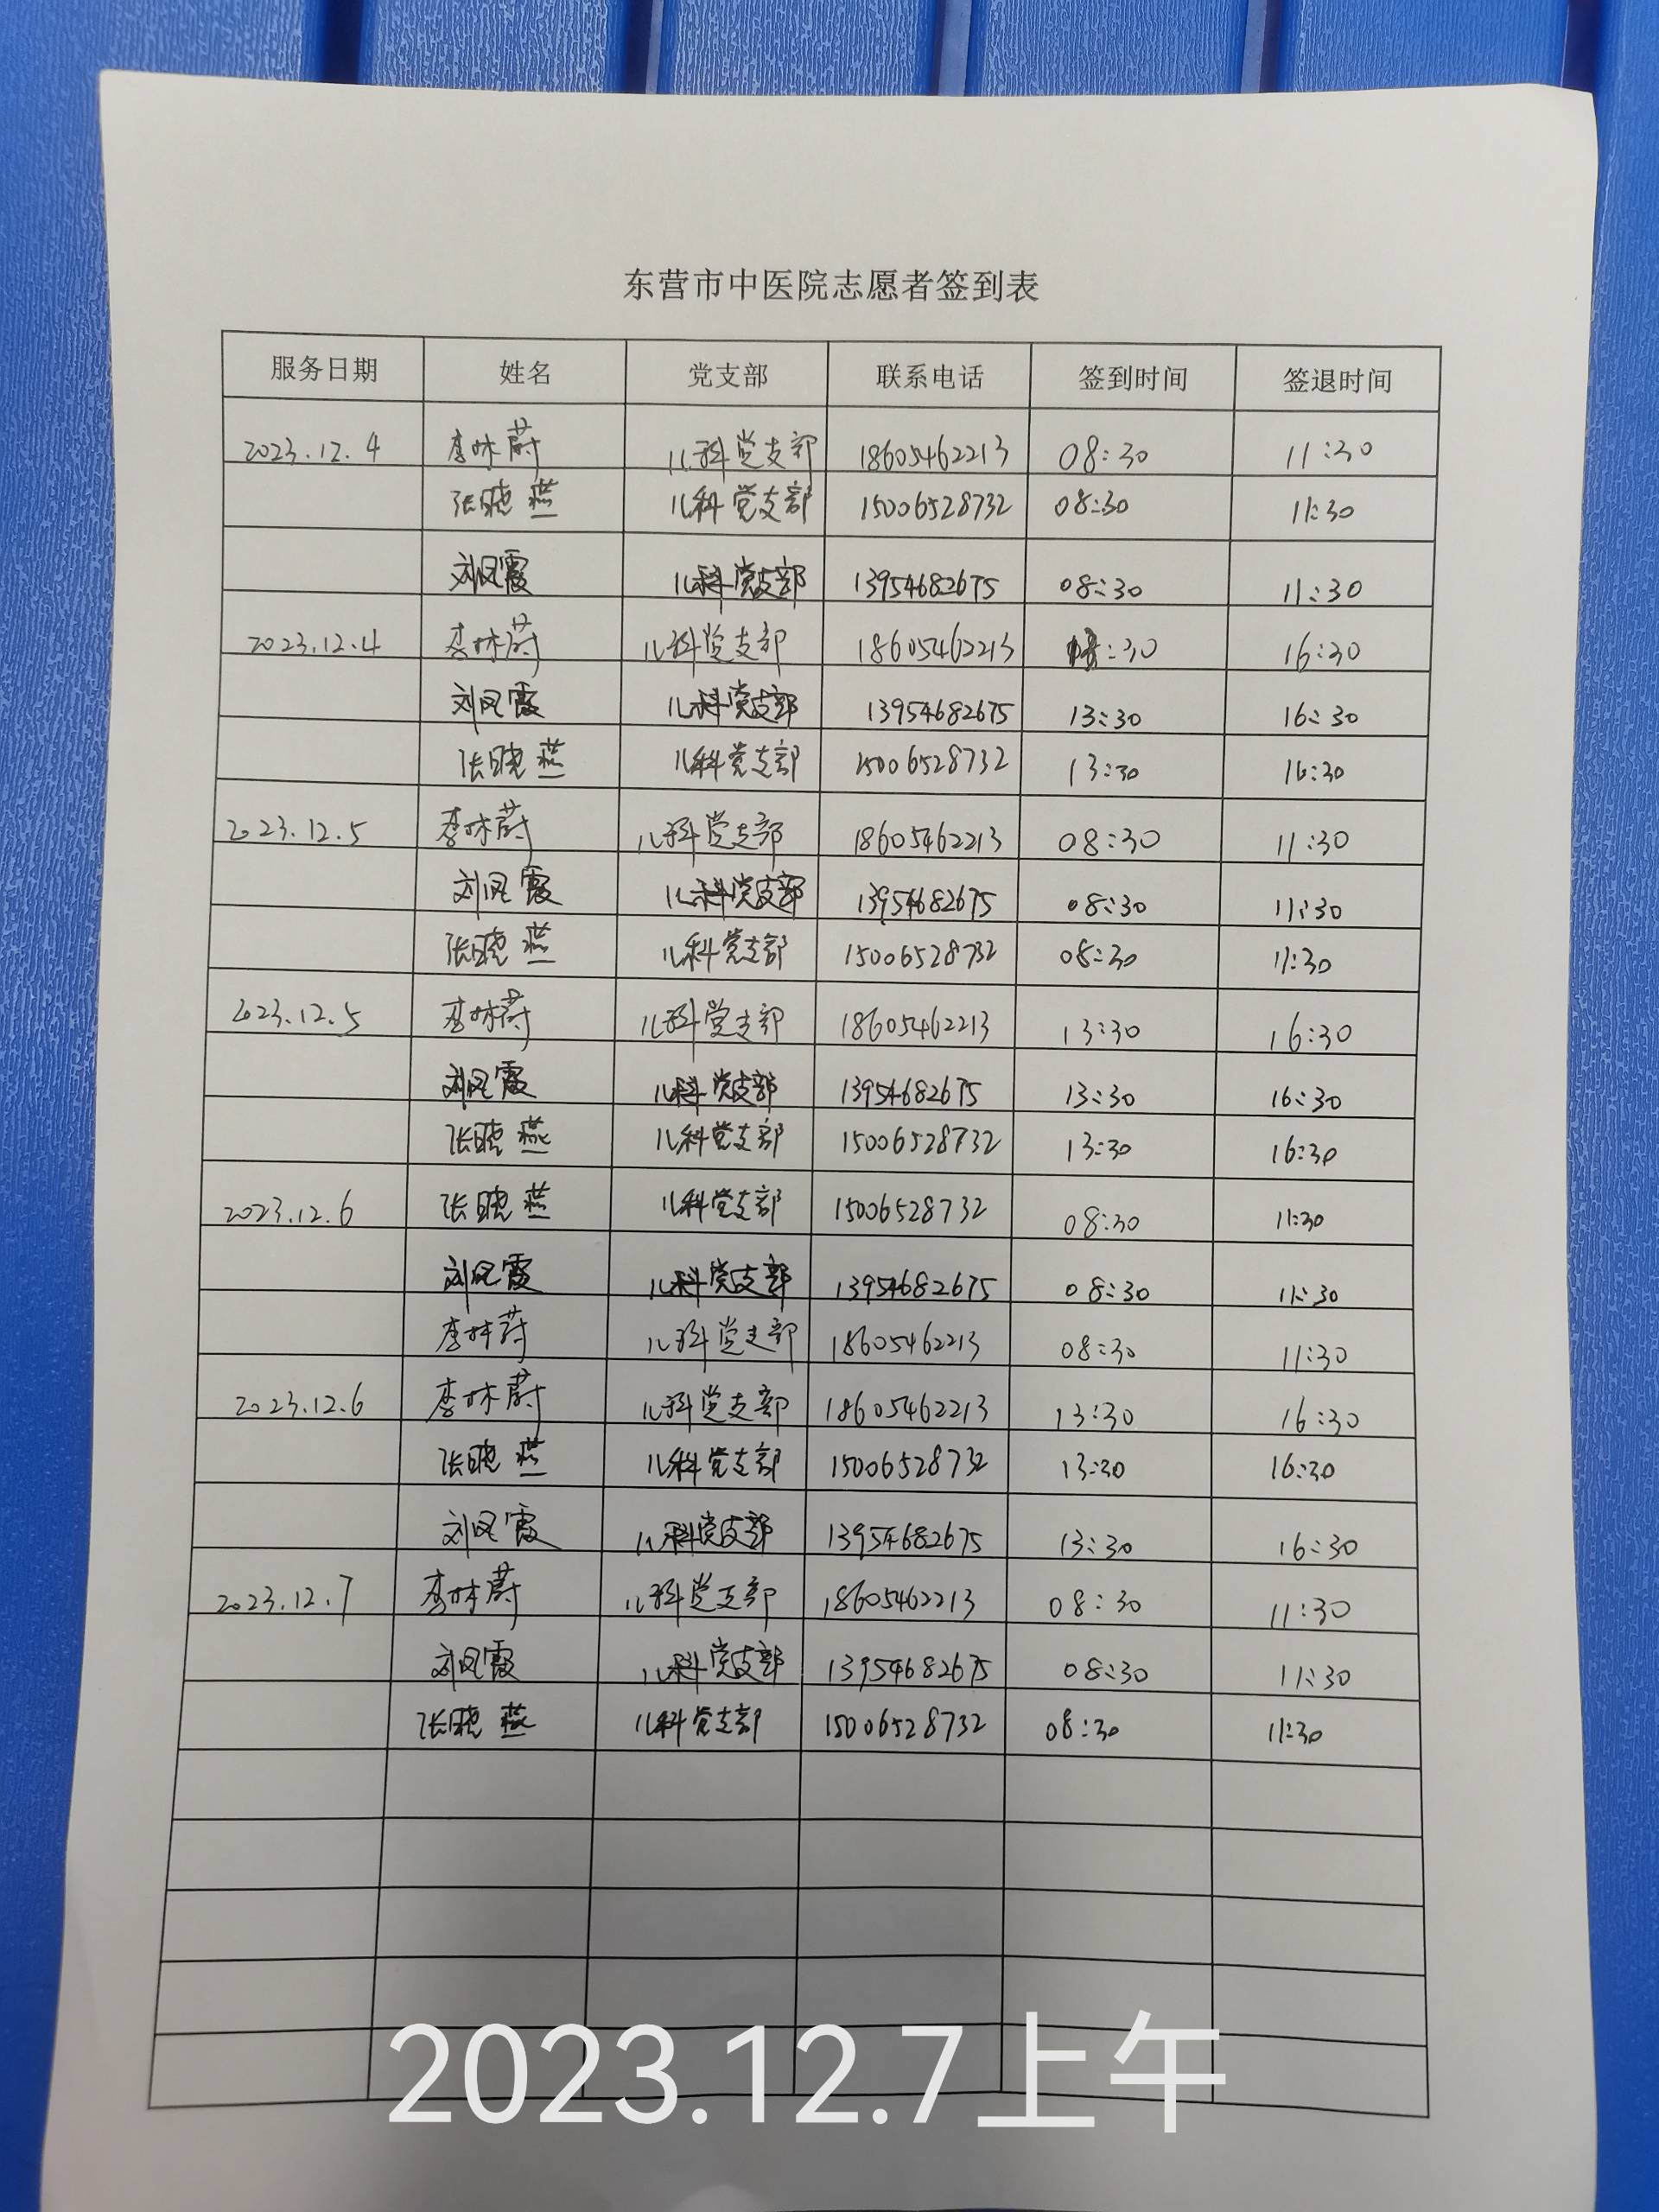 东营市中医院志愿者签到表
服务日期 姓名 党支部 联系电话 签到时间 签退时间
2023.12.4 李林蔚 儿科党支部 18605462213 08:30 11:30
张晓燕 儿科党支部 15006528732 08:30 11:30
刘凤霞 儿科党支部 13954682675 08:30 11:30
2023.12.4 李林蔚 儿科党支部 18605462213 :30 16:30
刘凤霞 儿科党支部 13954682675 13:30 16:30
张晓燕 儿科党支部 15006528732 13:30 16:30
2023.12.5 李林蔚 儿科党支部 18605462213 08:30 11:30
刘凤霞 儿科党支部 13954682675 08:30 11:30
张晓燕 儿科党支部 15006528732 08:30 11:30
2023.12.5 李林蔚 儿科党支部 18605462213 13:30 16:30
刘凤霞 儿科党支部 13954682675 13:30 16:30
张晓燕 儿科党支部 15006528732 13:30 16:30
2023.12.6 张晓燕 儿科党支部 15006528732 08:30 11:30
刘凤霞 儿科党支部 13954682675 08:30 11:30
李林蔚 儿科党支部 18605462213 08:30 11:30
2023.12.6 李林蔚 儿科党支部 18605462213 13:30 16:30
张晓燕 儿科党支部 15006528732 13:30 16:30
刘凤霞 儿科党支部 13954682675 13:30 16:30
2023.12.7 李林蔚 儿科党支部 18605462213 08:30 11:30
刘凤霞 儿科党支部 13954682675 08:30 11:30
张晓燕 儿科党支部 15006528732 08:30 11:30
2023.12.7上午